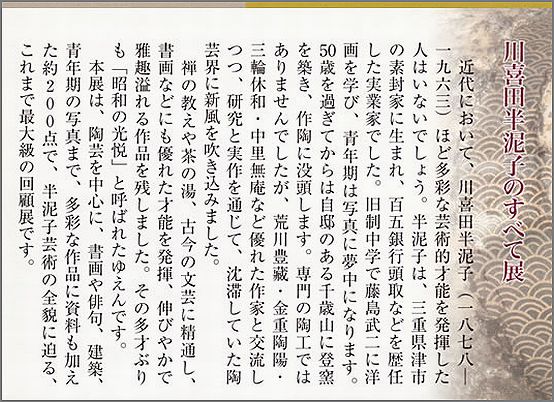 川喜田半泥子のすべて展
近代において、川喜田半泥子（一八七八―
一九六三）ほど多彩な芸術的才能を発揮した
人はいないでしょう。半泥子は、三重県津市
の素封家に生まれ、百五銀行頭取などを歴任
した実業家でした。旧制中学で藤島武二に洋
画を学び、青年期は写真に夢中になります。
50歳を過ぎてからは自邸のある千歳山に登窯
を築き、作陶に没頭します。専門の陶工では
ありませんでしたが、荒川豊蔵・金重陶陽・
三輪休和・中里無庵など優れた作家と交流し
つつ、研究と実作を通じて、沈滞していた陶
芸界に新風を吹き込みました。
禅の教えや茶の湯、古今の文芸に精通し、
書画などにも優れた才能を発揮、伸びやかで
雅趣溢れる作品を残しました。その多才ぶり
も「昭和の光悦」と呼ばれたゆえんです。
本展は、陶芸を中心に、書画や俳句、建築、
青年期の写真まで、多彩な作品に資料も加え
た約200点で、半泥子芸術の全貌に迫る、
これまで最大級の回顧展です。